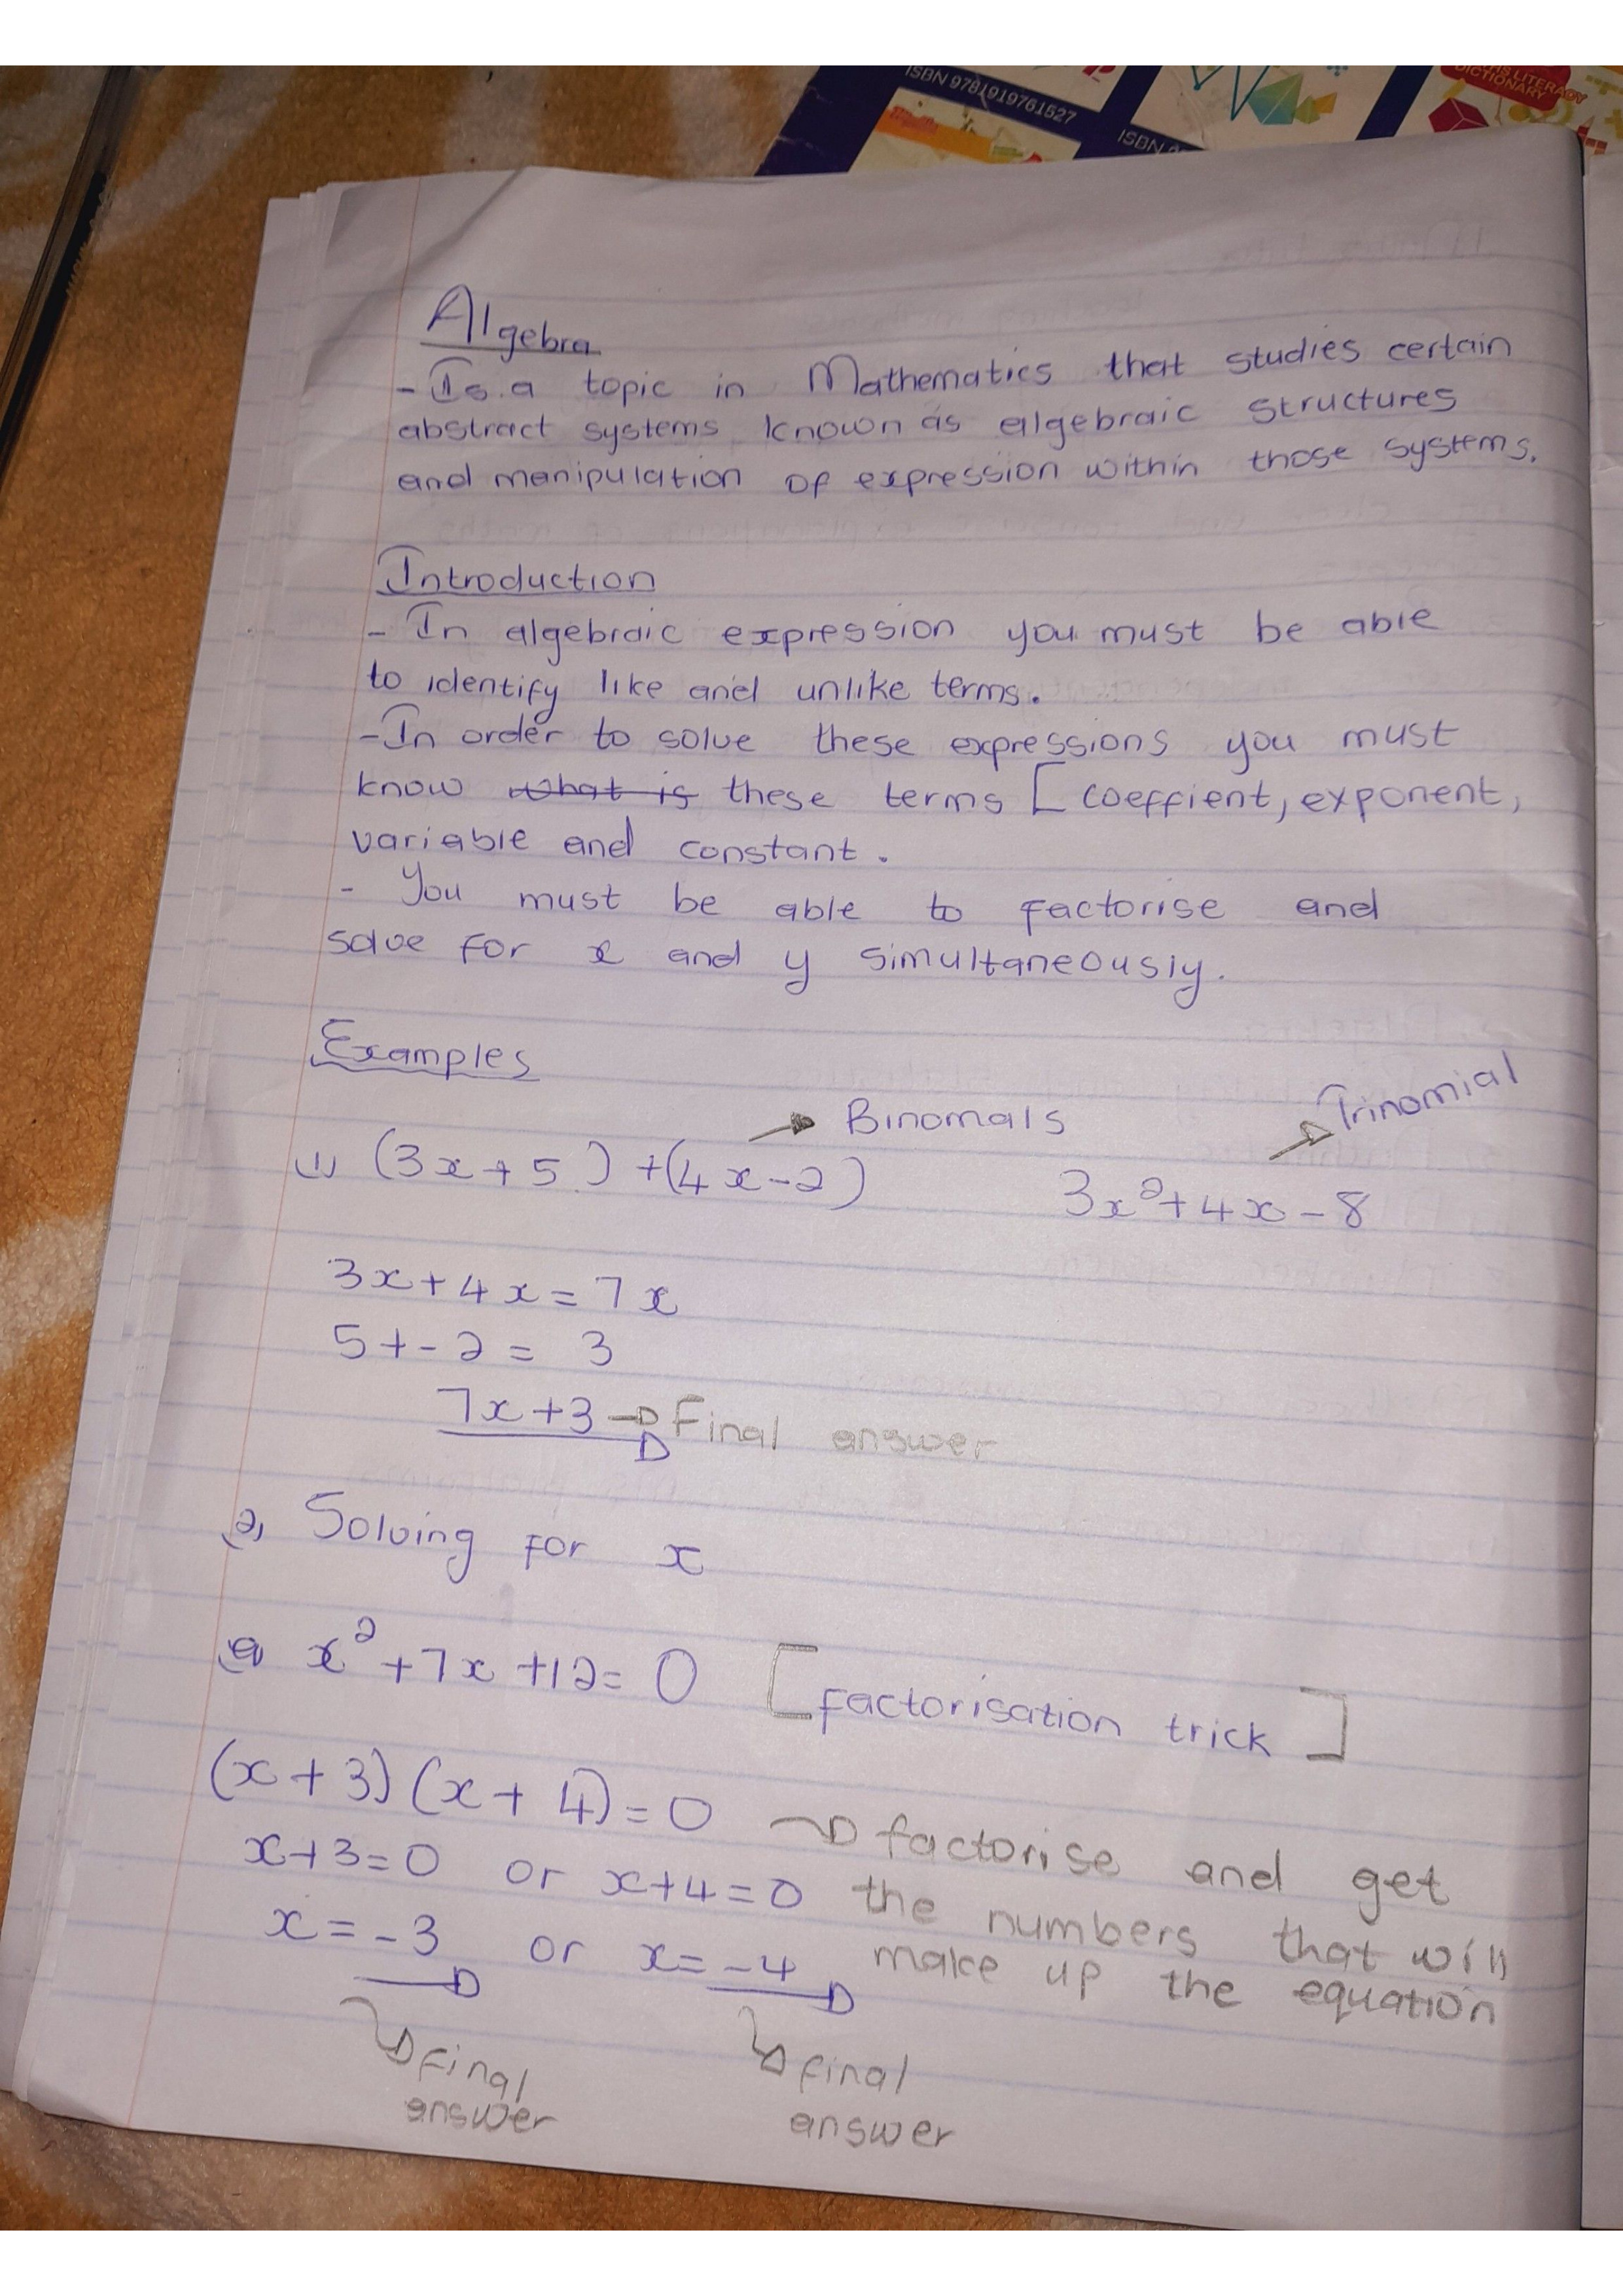 ISBN 9781919761527
ISBN
MATHS LITERACY
DICTIONARY
Algebra
- Is a topic in Mathematics that studies certain
abstract systems known as algebraic structures
and manipulation of expression within those systems.
Introduction
- In algebraic expression you must be able
to identify like and unlike terms.
- In order to solve these expressions you must
know what is these terms [ coeffient, exponent,
variable and constant.
- You must be able to factorise and
solve for x and y simultaneously.
Examples
Binomals
Trinomial
(1) (3x+5) + (4x-2)
3x²+4x-8
3x+4x=7x
5+-2= 3
7x+3 → Final answer
(2) Solving for x
(a) x²+7x+12=0 [factorisation trick]
(x+3)(x+4)=0 → factorise and get
x+3=0 or x+4=0 the numbers that will
x=-3 or x=-4 make up the equation
final final
answer answer